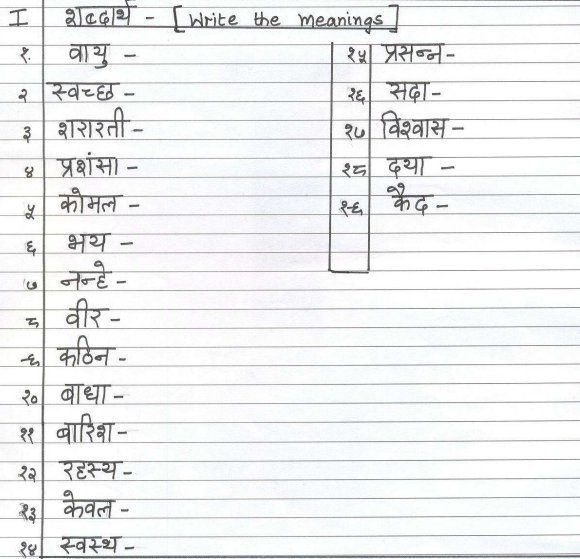 I शब्दार्थ - [Write the meanings]
१. वायु -
२ स्वच्छ -
३ शरारती -
४ प्रशंसा -
५ कोमल -
६ भय -
७ नन्हे -
८ वीर -
९ कठिन -
१० बाधा -
११ बारिश -
१२ रहस्य -
१३ केवल -
१४ स्वस्थ -
१५ प्रसन्न -
१६ सदा -
१७ विश्वास -
१८ दया -
१९ कैद -